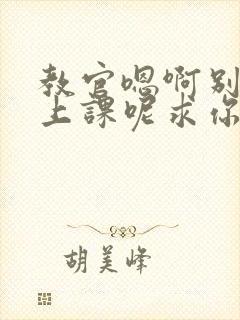 教官嗯啊别
上課呢求你
胡美峰